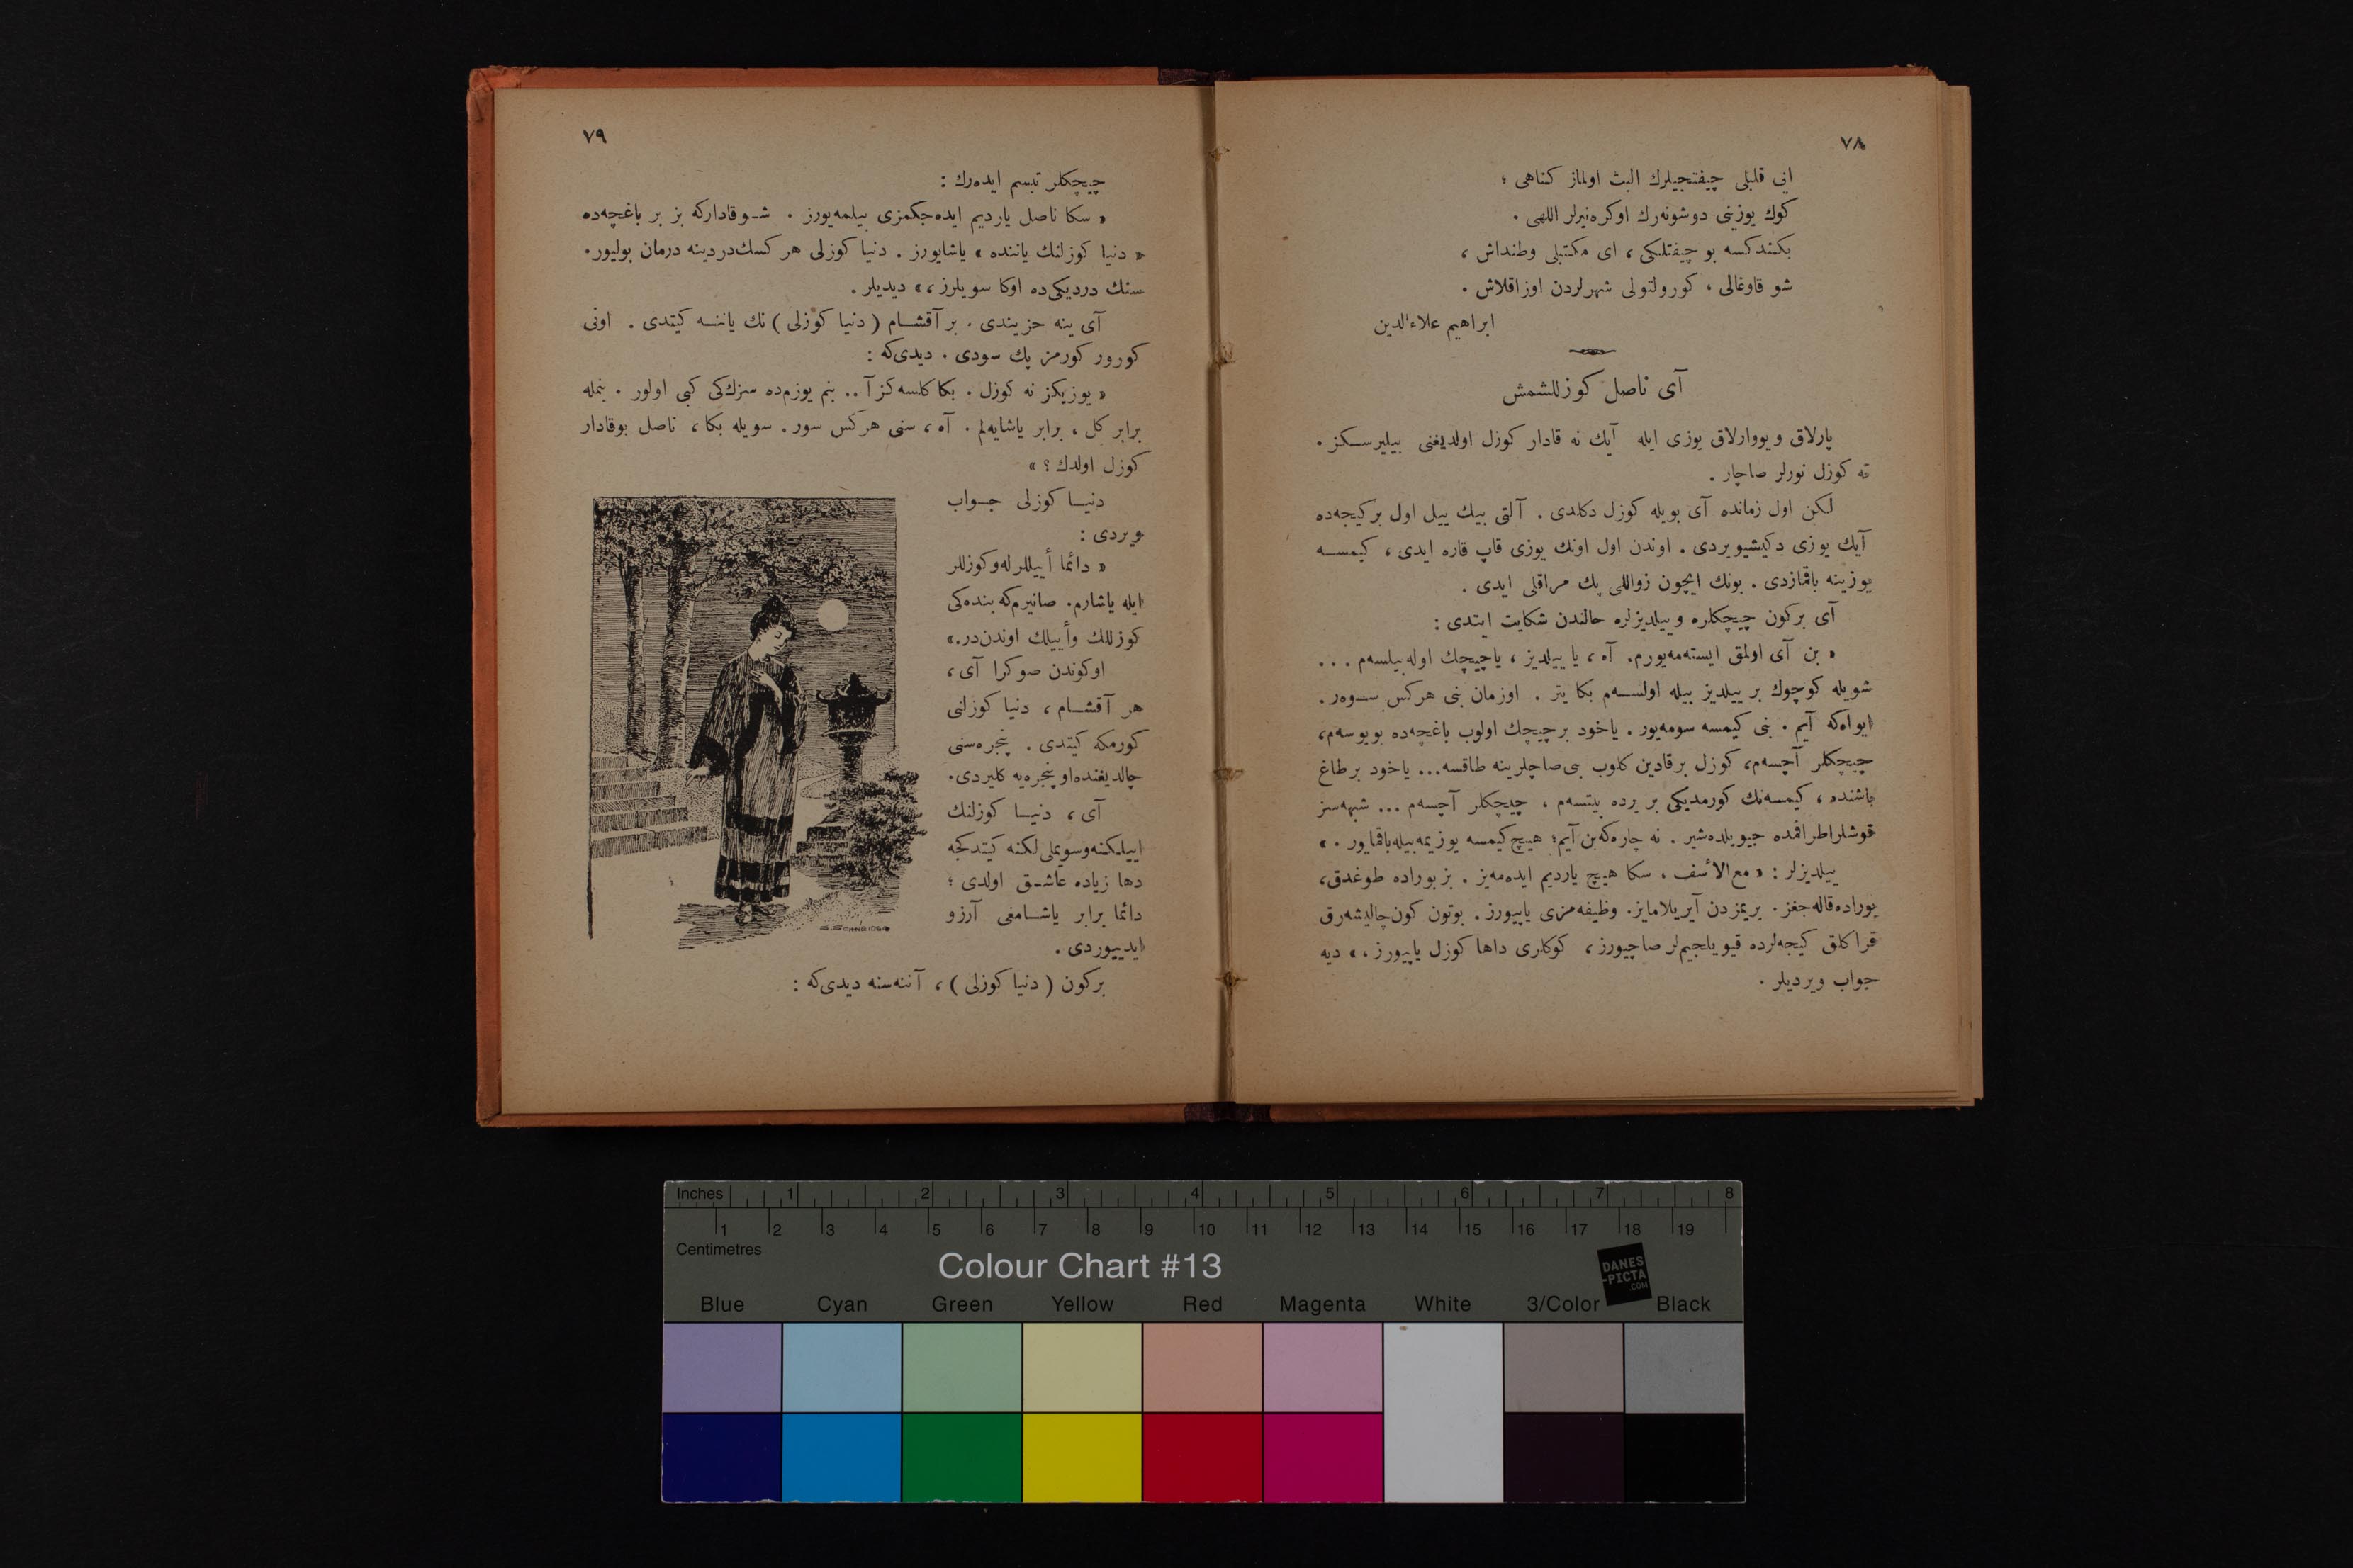 ٧٨
ايی قلبلی چيفتجيلرك البت اولماز كناهی ؛
كوك يوزينی دوشونه‌رك اوكره‌نيرلر اللهی .
بكنمدكسه بو چيفتلكی ، ای مكتبلی وطنداش ،
شو قاوغالی ، كورولتولی شهرلردن اوزاقلاش .
ابراهيم علاءالدين
آی ناصل كوزللشمش
پارلاق ويووارلاق يوزی ايله آيك نه قادار كوزل اولديغنی بيليرسكز .
نه كوزل نورلر صاچار .
لكن اول زمانده آی بويله كوزل دكلدی . آلتی بيك ييل اول بركيجه‌ده
آيك يوزی دكيشيويردی . اوندن اول اونك يوزی قاپ قاره ايدی ، كيمسه
يوزينه باقمازدی . بونك ايچون زواللی پك مراقلی ايدی .
آی بركون چيچكلره وييلديزلره حالندن شكايت ايتدی :
« بن آی اولمق ايسته‌مه‌يورم. آه ، يا ييلديز ، ياچيچك اوله‌بيلسه‌م ...
شويله كوچوك بر ييلديز بيله اولسه‌م بكا يتر . اوزمان بنی هركس سه‌ور .
ايواه‌كه آيم . بنی كيمسه سومه‌يور . ياخود برچيچك اولوب باغچه‌ده بويوسه‌م،
چيچكلر آچسه‌م، كوزل برقادين كلوب بنی‌صاچلرينه طاقسه... ياخود برطاغ
باشنده ، كيمسه‌نك كورمديكی بر يرده بيتسه‌م ، چيچكلر آچسه‌م ... شبهه‌سز
قوشلراطرافمده جيويلده‌شير . نه چاره‌كه‌بن‌آيم؛ هيچ‌كيمسه يوزيمه‌بيله‌باقمايور . »
ييلديزلر : « مع‌الأسف ، سكا هيچ يارديم ايده‌مه‌يز . بزبوراده طوغدق،
بوراده‌قاله‌جغز. بريمزدن آيريلامايز. وظيفه‌مزی ياپيورز. بوتون كون‌چاليشه‌رق
قراكلق كيجه‌لرده قيويلجيملر صاچيورز ، كوكلری داها كوزل ياپيورز ، » ديه
جواب ويرديلر .
٧٩
چيچكلر تبسم ايده‌رك :
« سكا ناصل يارديم ايده‌جكمزی بيلمه‌يورز . شوقاداركه بز بر باغچه‌ده
« دنيا كوزلنك ياننده » ياشايورز . دنيا كوزلی هر كسك‌دردينه درمان بوليور.
سنك درديكی‌ده اوكا سويلرز ،» ديديلر .
آی ينه حزيندی . بر آقشام ( دنيا كوزلی ) نك ياننه كيتدی . اونی
كورور كورمز پك سودی . ديدی‌كه :
« يوزيكز نه كوزل . بكا كلسه‌كز آ .. بنم يوزم‌ده سزك‌كی كبی اولور . بنمله
برابر كل ، برابر ياشايه‌لم . آه ، سنی هركس سور . سويله بكا ، ناصل بوقادار
كوزل اولدك ؟ »
دنيا كوزلی جواب
ويردی :
« دائما أييللرله‌وكوزللر
ايله ياشارم. صانيرم‌كه بنده‌كی
كوزللك وأييلك اوندن‌در.»
اوكوندن صوكرا آی ،
هر آقشام ، دنيا كوزلنی
كورمكه كيتدی . پنجره‌سنی
چالديغنده‌او پنجره‌يه كليردی.
آی ، دنيا كوزلنك
اييلكنه‌وسويملی‌لكنه كيتدكجه
دها زياده عاشق اولدی ؛
دائما برابر ياشامغی آرزو
ايدييوردی .
بركون ( دنيا كوزلی ) ، آننه‌سنه ديدی‌كه :
Inches 1 2 3 4 5 6 7 8
1 2 3 4 5 6 7 8 9 10 11 12 13 14 15 16 17 18 19
Centimetres
Colour Chart #13
DANES
-PICTA
.COM
Blue Cyan Green Yellow Red Magenta White 3/Color Black